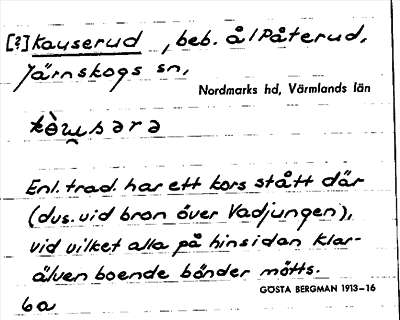 [?] Kauserud, beb. å/Påterud,
Järnskogs sn,
Nordmarks hd, Värmlands län
Enl. trad. har ett kors stått där
(dvs. vid bron över Vadjungen),
vid vilket alla på hinsidan Klar-
älven boende bönder mötts.
GÖSTA BERGMAN 1913–16
6a